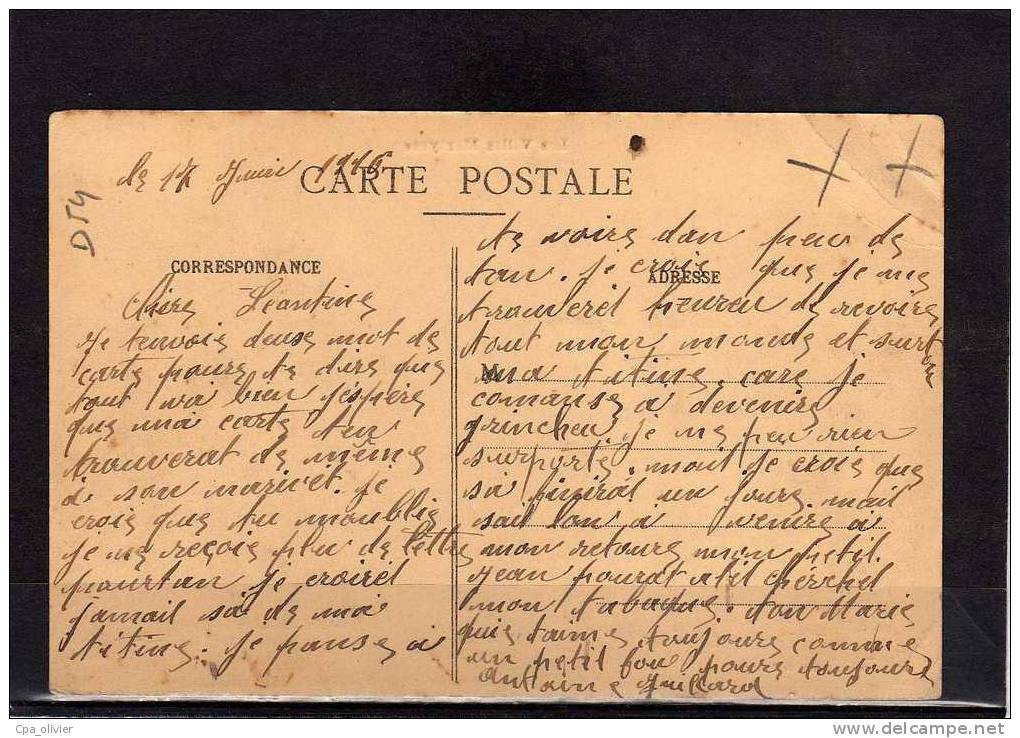 le 17 Juin 1916
CARTE POSTALE
D54
CORRESPONDANCE
Chère Léantine
Je tenvois deuse mot de
carte poure te dire que
tout va bien j'espère
que ma carte ten
trouverat de même
a son arivet. je
crois que tu moublie
je ne reçois plu de lettre
pourtan je croirèt
jamail sà de ma
titine. je panse à
te voire dan peu de
tan. je crois que je me
ADRESSE
trouverèt heureu de revoire
tout mon monde et surtou
M
ma titine, care je
comanse a devenire
grincheu je ne peu rien
surporte. mait je crois que
sà finirat un joure mail
sait lon à venire a
mon retoure mon petit
Jean pourat atil cherchel
mon tabaque. ton Marie
qui taime toujours comme
un petit fou poure toujoure
Antoine Juillard
Cpa_olivier
www.delcampe.net